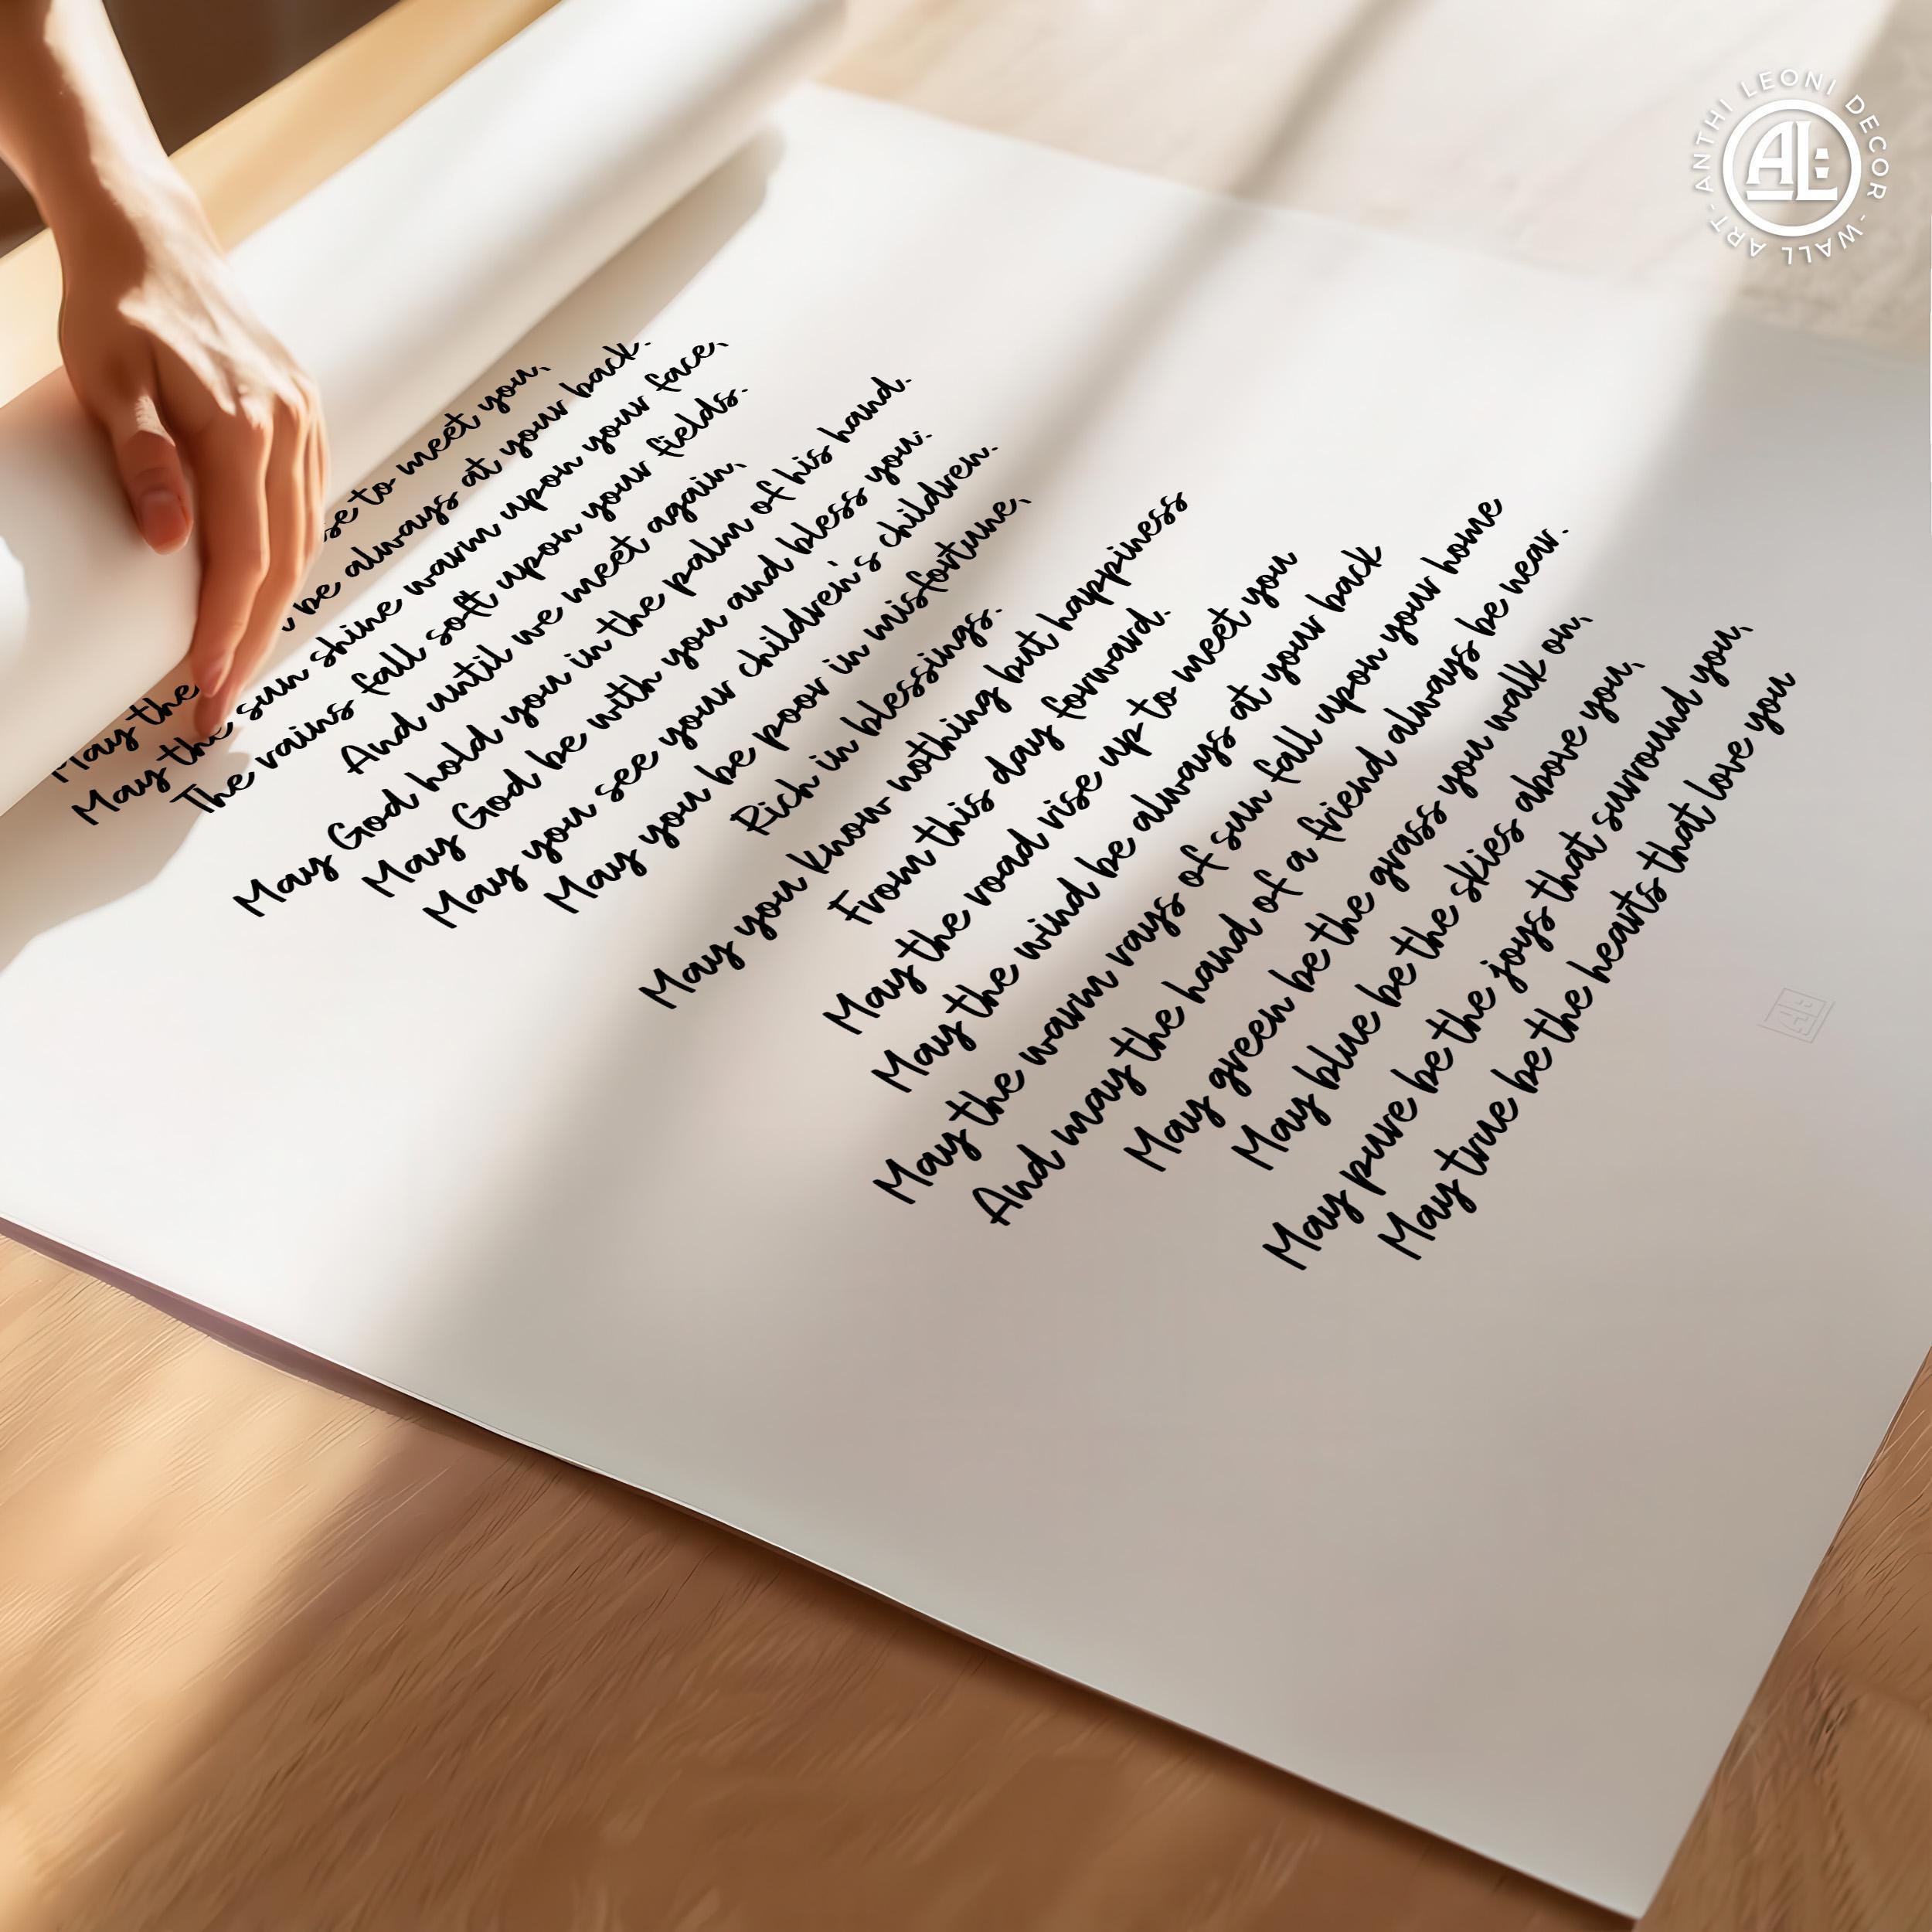 to meet you,
May the be always at your back.
May the sun shine warm upon your face,
The rains fall soft upon your fields.
And until we meet again,
May God hold you in the palm of his hand.
May God be with you and bless you:
May you see your children's children.
May you be poor in misfortune,
Rich in blessings.
May you know nothing but happiness
From this day forward.
May the road rise up to meet you
May the wind be always at your back
May the warm rays of sun fall upon your home
And may the hand of a friend always be near.
May green be the grass you walk on,
May blue be the skies above you,
May pure be the joys that surround you,
May true be the hearts that love you
ANTHI LEONI DECOR - WALL ART -
AL